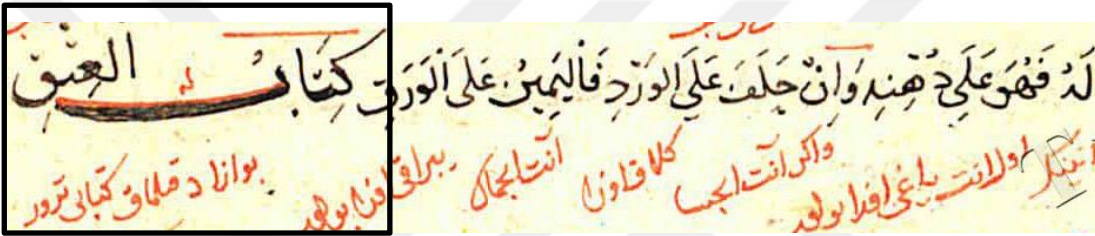 لَهُ فَهُوَ عَلَى دُهْنِهِ وَاِنْ حَلَفَ عَلَى الوَرْدِ فَاليَمِينُ عَلَى الوَرَقِ كِتَابُ العِتْقِ
اول انت ياغى اوزا بولور واكر انت ايجسا اوزا انت ايجماك يبراقى اوزا بولور بو ازاد قيلماق كتابى ترور